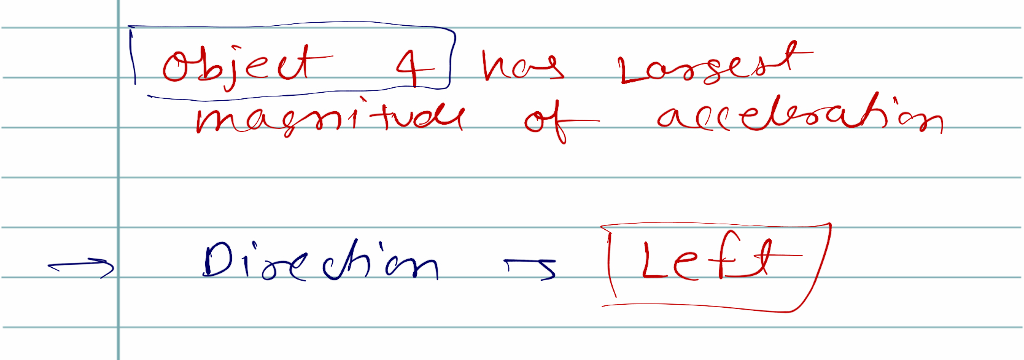 Object 4 has Largest
magnitude of acceleration
→ Direction → Left